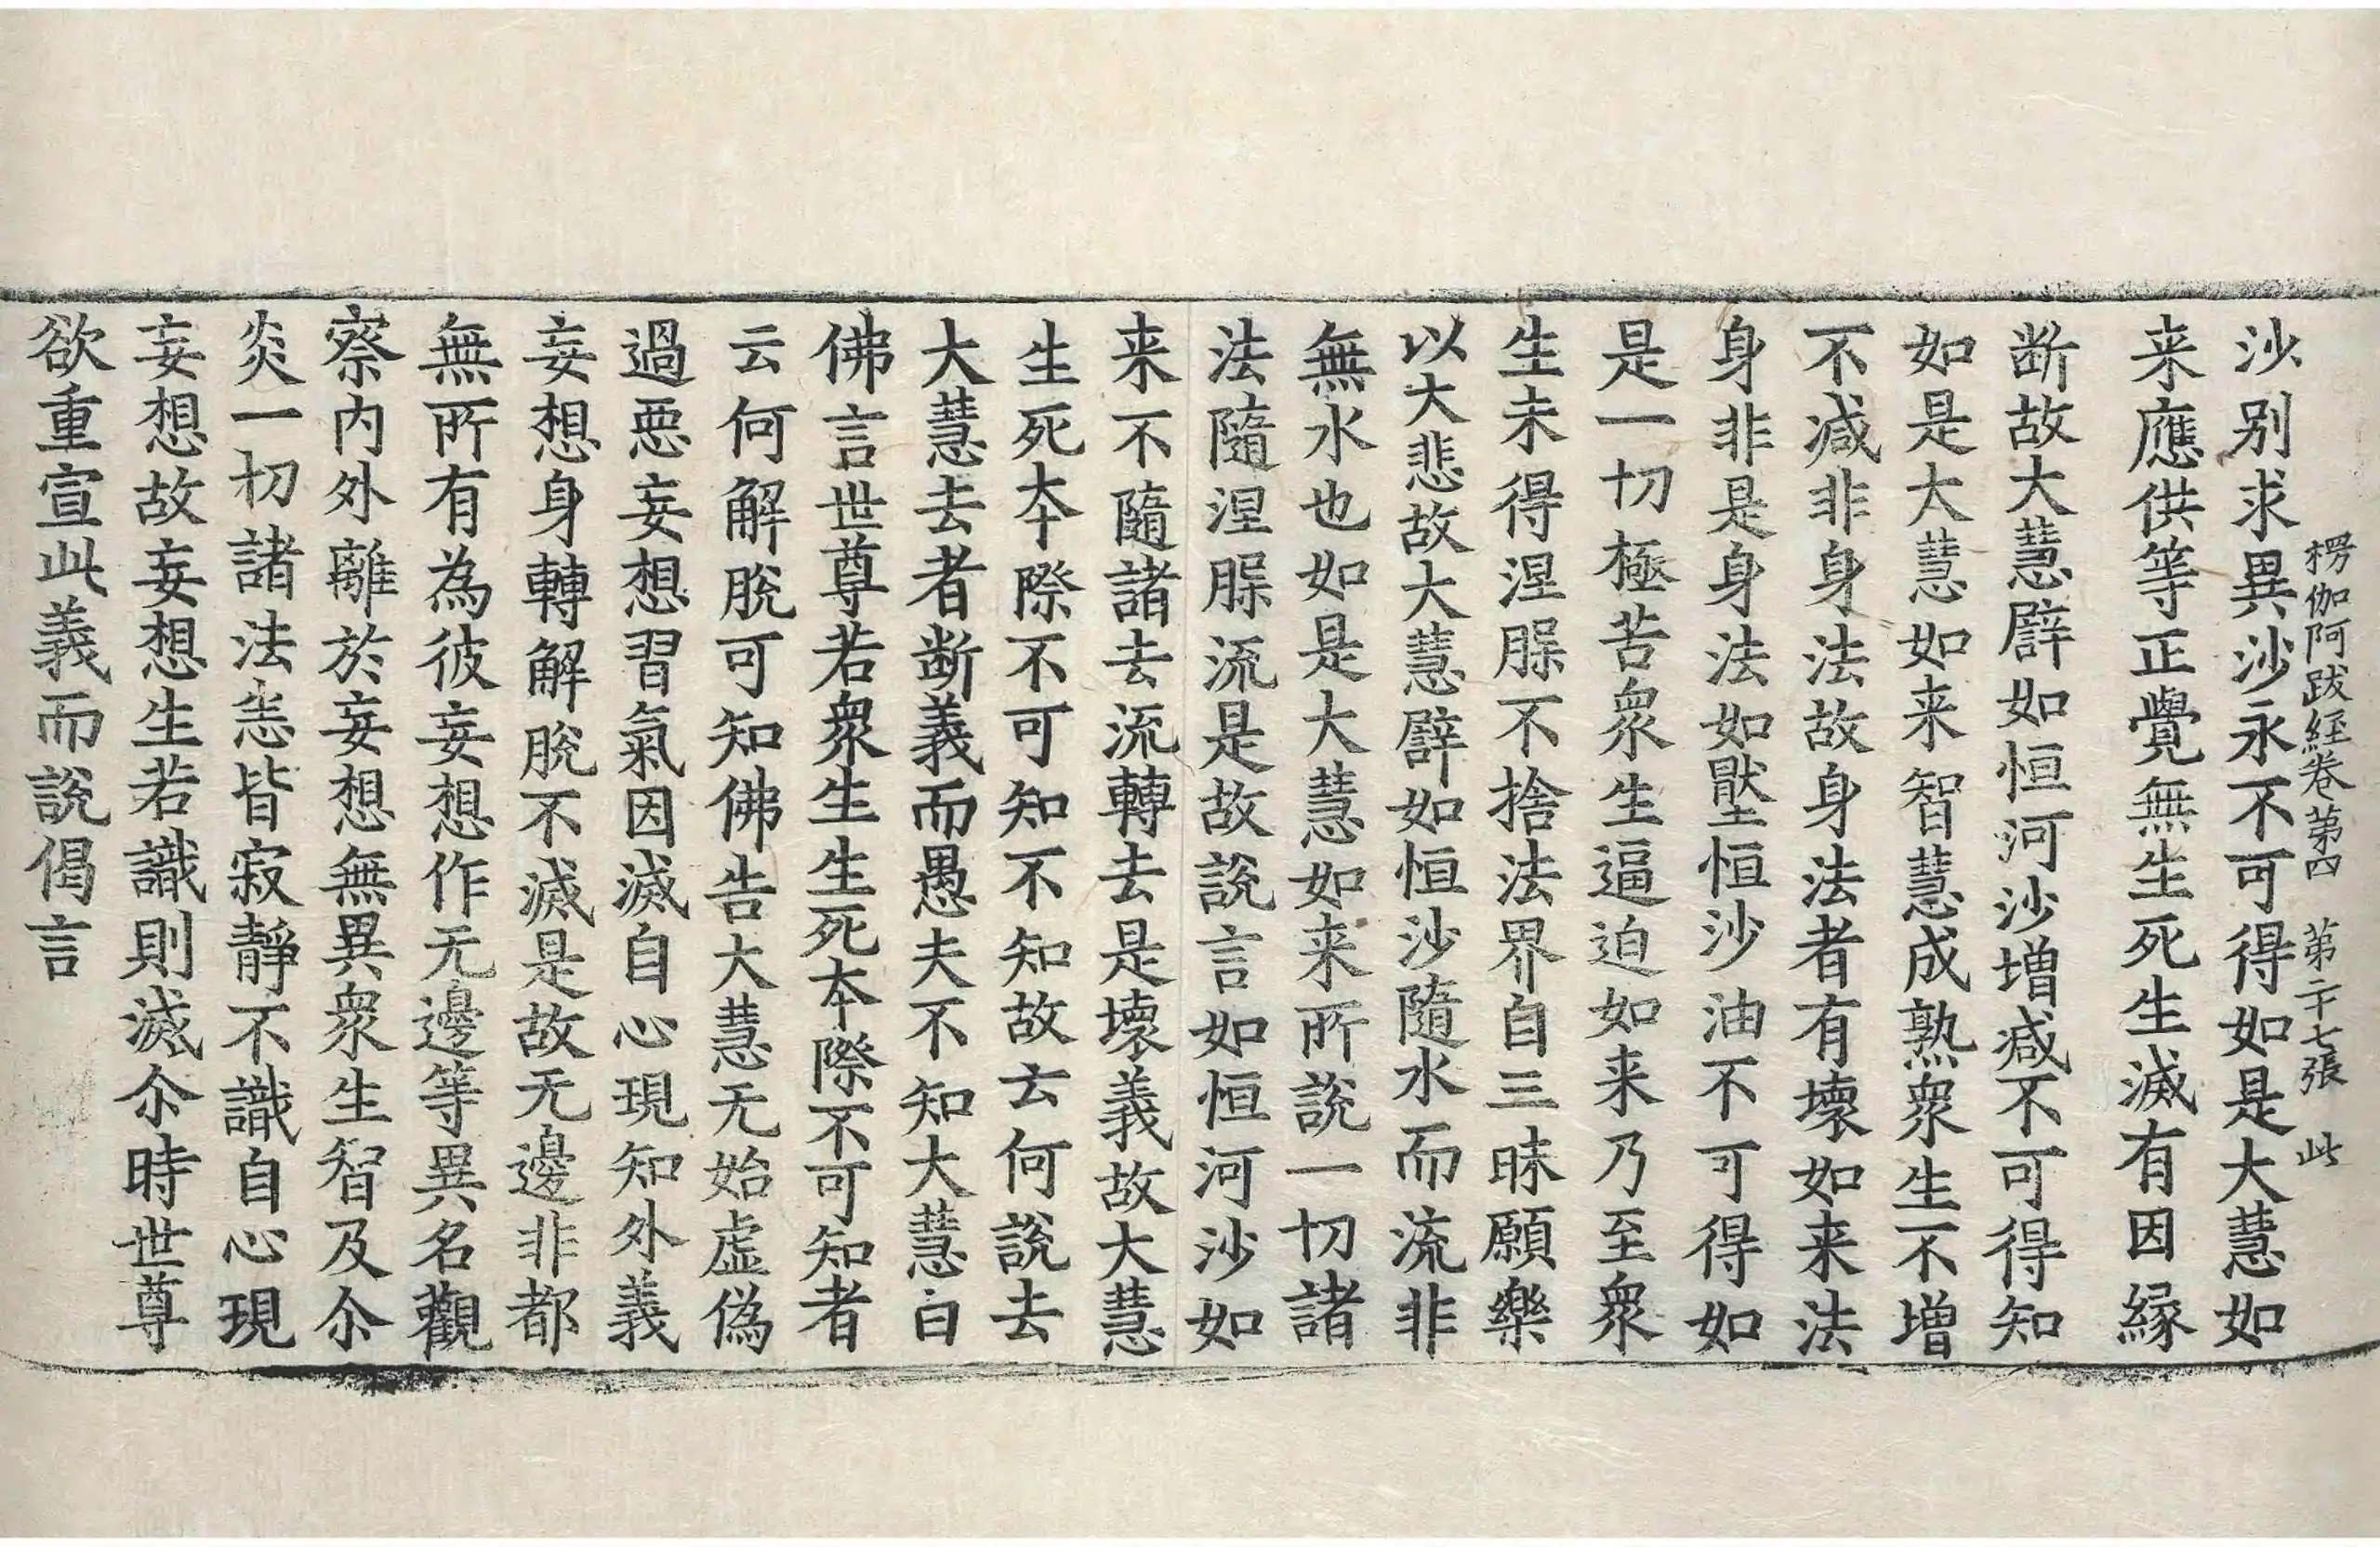 楞伽阿跋經卷第四　第二十七張　此
沙别求異沙永不可得如是大慧如
来應供等正覺無生死生滅有因緣
断故大慧譬如恒河沙增減不可得知
如是大慧如来智慧成熟衆生不增
不減非身法故身法者有壞如来法
身非是身法如壓恒沙油不可得如
是一切極苦衆生逼迫如来乃至衆
生未得涅槃不捨法界自三昧願樂
以大悲故大慧譬如恒沙隨水而流非
無水也如是大慧如来所說一切諸
法隨涅槃流是故說言如恒河沙如
来不隨諸去流轉去是壞義故大慧
生死夲際不可知不知故云何說去
大慧去者断義而愚夫不知大慧白
佛言世尊若衆生生死夲際不可知者
云何解脫可知佛告大慧无始虛偽
過惡妄想習氣因滅自心現知外義
妄想身轉解脫不滅是故无邊非都
無所有為彼妄想作无邊等異名觀
察内外離於妄想無異衆生智及尒
炎一切諸法悉皆寂靜不識自心現
妄想故妄想生若識則滅尒時世尊
欲重宣此義而說偈言